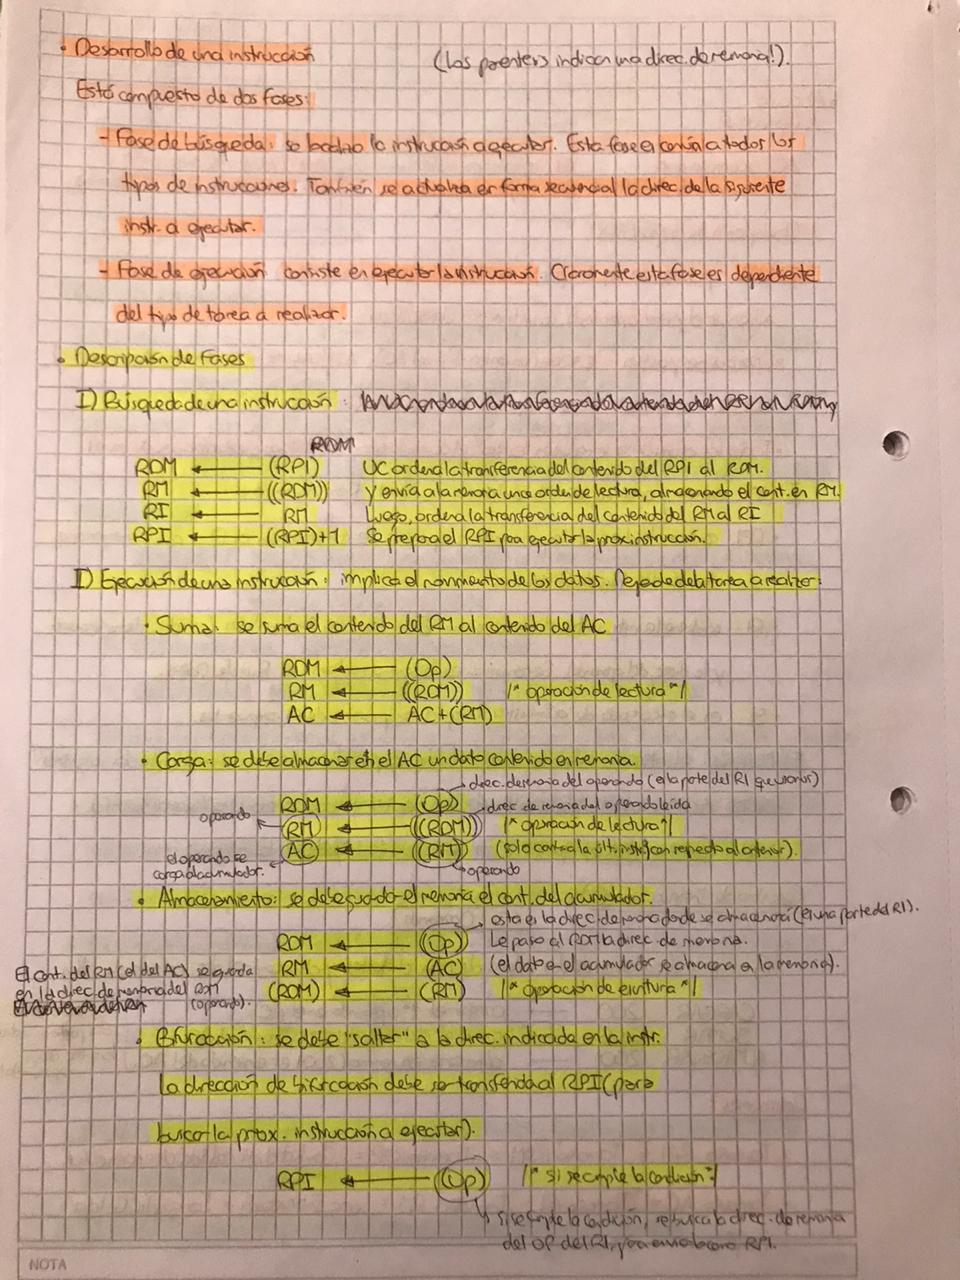 • Desarrollo de una instrucción (Los parentes indican una direc. de memoria!).
Está compuesto de dos fases:
- Fase de búsqueda: se localiza la instrucción a ejecutar. Esta fase es común a todos los
tipos de instrucciones. También se actualiza en forma secuencial la direc. de la siguiente
instr. a ejecutar.
- Fase de ejecución: consiste en ejecutar la instrucción. Claramente esta fase es dependiente
del tipo de tarea a realizar.
• Descripción de Fases
I) Búsqueda de una instrucción:
RDM
RDM ← (RPI) UC ordena la transferencia del contenido del RPI al RDM.
RM ← ((RDM)) y envía a la memoria una orden de lectura, almacenando el cont. en RM.
RI ← RM Luego, ordena la transferencia del contenido del RM al RI
RPI ← (RPI)+1 Se prepara el RPI para ejecutar la prox instrucción.
II) Ejecución de una instrucción: implica el movimiento de los datos. Depende de la tarea a realizar:
• Suma: se suma el contenido del RM al contenido del AC
RDM ← (Op)
RM ← ((RDM)) /* operación de lectura */
AC ← AC+(RM)
• Carga: se debe almacenar en el AC un dato contenido en memoria.
direc. de memoria del operando (es la parte del RI que )
RDM ← (Op) direc de memoria del operando leída
operando RM ← ((RDM)) /* operación de lectura */
AC ← (RM) (solo cambia la últ. instr con respecto al anterior).
el operando se
carga al acumulador. operando
• Almacenamiento: se debe guardar en memoria el cont. del acumulador.
esta es la direc. de memoria donde se almacenará (es una parte del RI).
RDM ← (Op) Le paso al RDM la direc. de memoria.
El cont. del RM (el del AC) se guarda RM ← (AC) (el dato en el acumulador se almacena en la memoria).
en la direc. de memoria del RDM (RDM) ← (RM) /* operación de escritura */
(operando).
• Bifurcación: se debe "saltar" a la direc. indicada en la instr.
La dirección de bifurcación debe ser transferida al RPI (para
buscar la prox. instrucción a ejecutar).
RPI ← (Op) /* si se cumple la condición */
si se cumple la condición, se busca la direc. de memoria
del OP del RI, para RPI.
NOTA